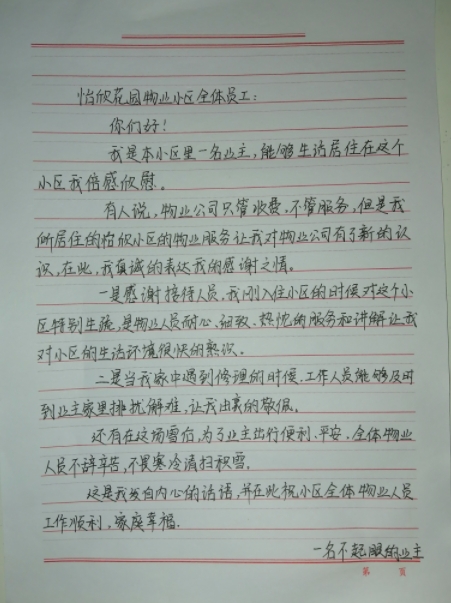 怡欣花园物业小区全体员工：
你们好！
我是本小区里一名业主，能够生活居住在这个
小区我倍感欣慰。
有人说，物业公司只管收费，不管服务，但是我
所居住的怡欣小区的物业服务让我对物业公司有了新的认
识，在此，我真诚的表达我的感谢之情。
一是感谢接待人员，我刚入住小区的时候对这个小
区特别生疏，是物业人员耐心、细致、热忱的服务和讲解让我
对小区的生活环境很快的熟识。
二是当我家中遇到修理的时候，工作人员能够及时
到业主家里排扰解难，让我由衷的敬佩。
还有在这场雪后，为了业主出行便利、平安，全体物业
人员不辞辛苦，不畏寒冷清扫积雪。
这是我发自内心的话语，并在此祝小区全体物业人员
工作顺利，家庭幸福．
一名不起眼的业主
第 页